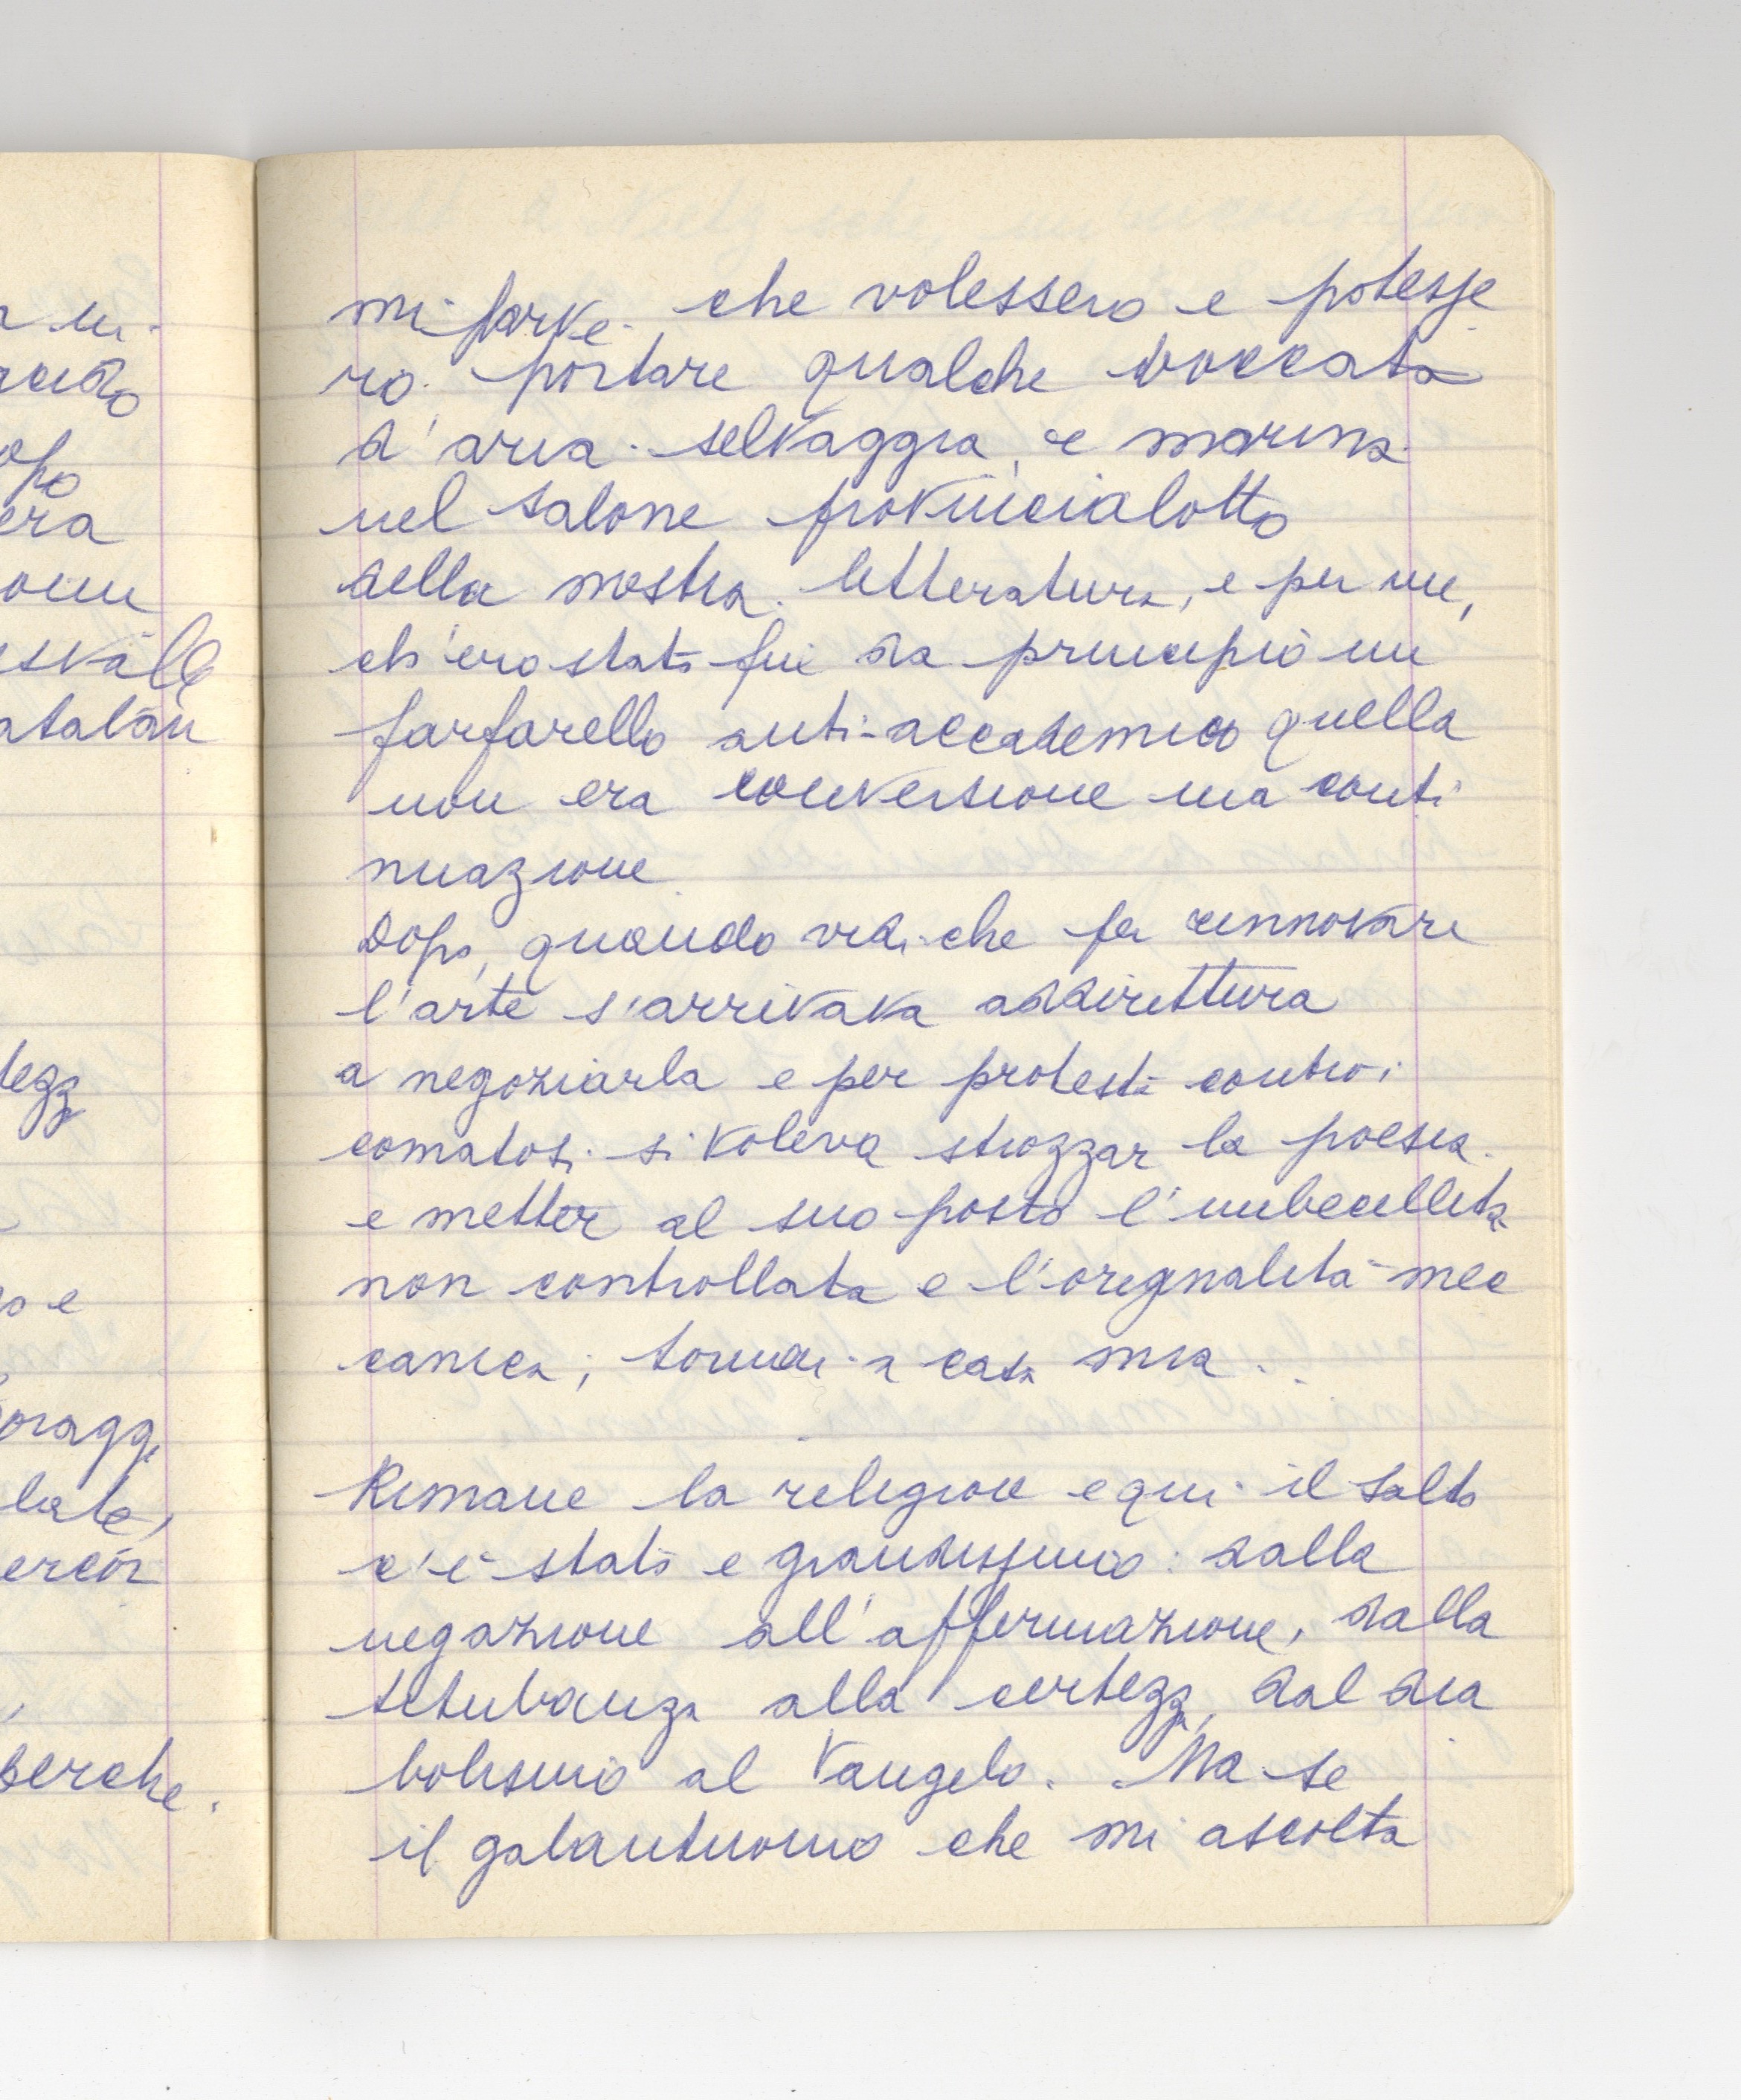 mi parve che volessero e potesse
ro portare qualche boccata
d'aria selvaggia e marina
nel salone provincialotto
della nostra letteratura, e per me,
ch'ero stato fin da principio un
farfarello anti-accademico quella
non era conversione ma conti
nuazione
Dopo, quando vidi che per rinnovare
l'arte s'arrivava addirittura
a negoziarla e per protesta contro i
comatosi si voleva strozzar la poesia
e metter al suo posto l'imbecillità
non controllata e l'originalità mec
canica; tornai a casa mia.
Rimane la religione e qui il salto
c'è stato e grandissimo: dalla
negazione all'affermazione, dalla
titubanza alla certezza, dal dia
bolismo al Vangelo. Ma se
il galantuomo che mi ascolta